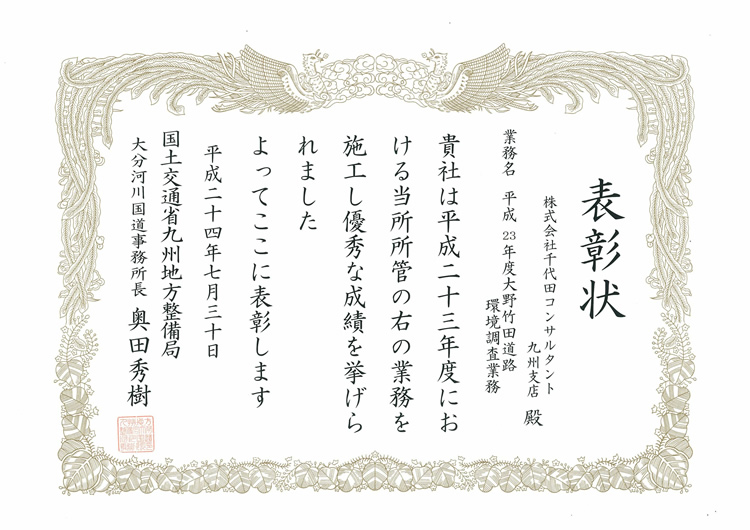 表彰状
株式会社千代田コンサルタント
九州支店 殿
業務名 平成23年度大野竹田道路
環境調査業務
貴社は平成二十三年度にお
ける当所所管の右の業務を
施工し優秀な成績を挙げら
れました
よってここに表彰します
平成二十四年七月三十日
国土交通省九州地方整備局
大分河川国道事務所長 奥田秀樹